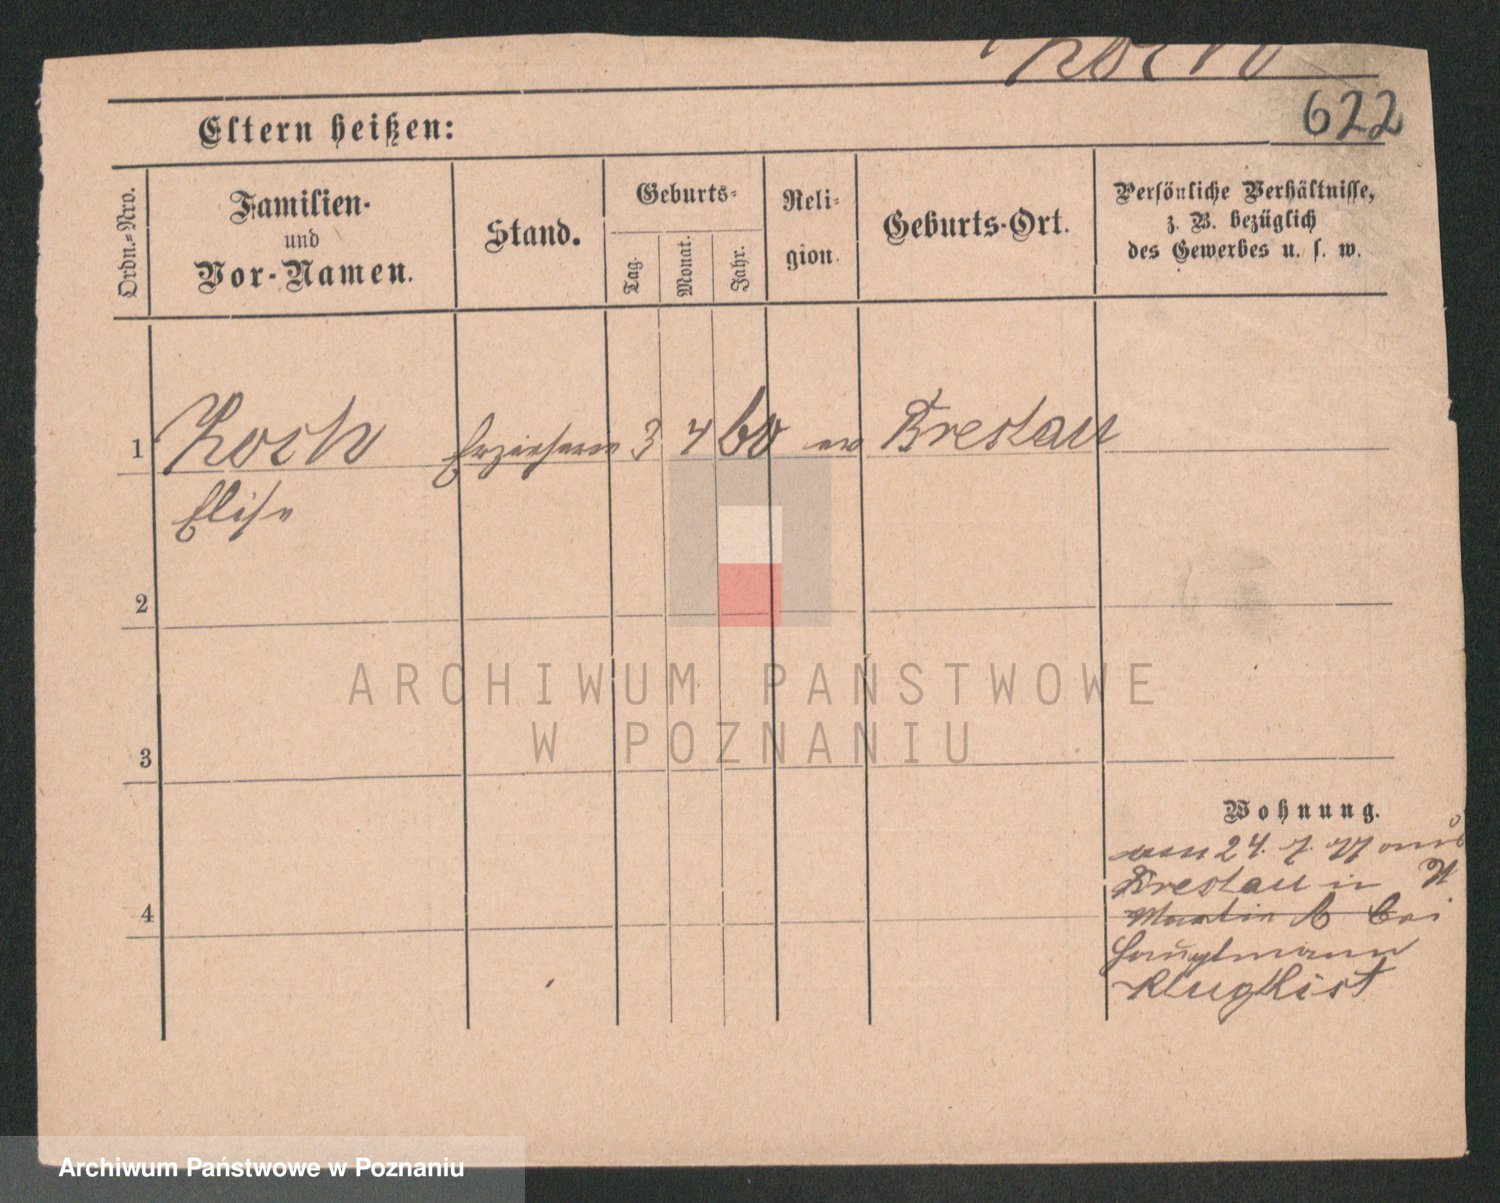 Koch
622
Eltern heißen:
Ordn.-Nro.
Familien-
und
Vor-Namen.
Stand.
Geburts-
Tag.
Monat.
Jahr.
Reli-
gion.
Geburts-Ort.
Persönliche Verhältnisse,
z. B. bezüglich
des Gewerbes u. s. w.
1 Koch Erzieherin 3 4 60 ev Breslau
Elise
2
3
4
Wohnung.
am 24. 7. 77 aus
Breslau in
Martin bei
Hauptmann
Klugkist
ARCHIWUM PAŃSTWOWE
W POZNANIU
Archiwum Państwowe w Poznaniu